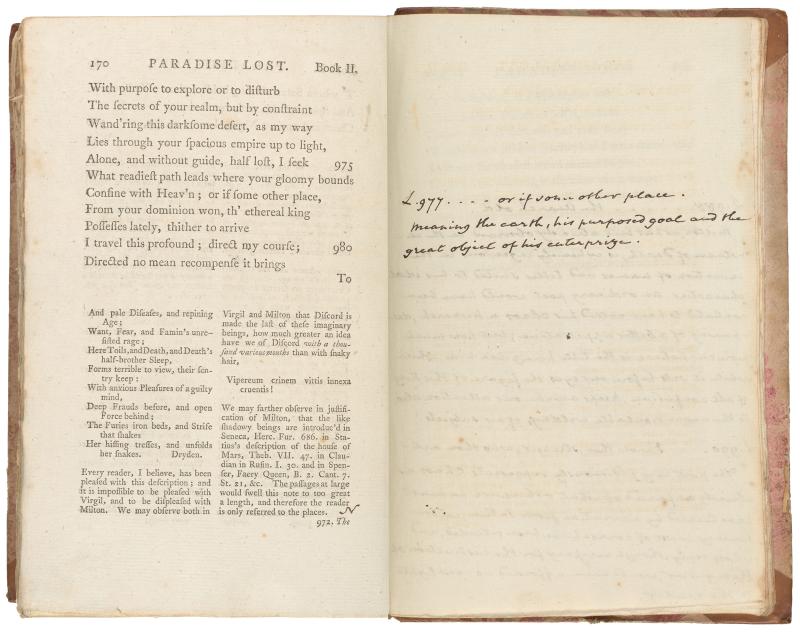 170 PARADISE LOST. Book II.
With purpoſe to explore or to diſturb
The ſecrets of your realm, but by conſtraint
Wand'ring this darkſome deſert, as my way
Lies through your ſpacious empire up to light,
Alone, and without guide, half loſt, I ſeek 975
What readieſt path leads where your gloomy bounds
Confine with Heav'n; or if ſome other place,
From your dominion won, th' ethereal king
Poſſeſſes lately, thither to arrive
I travel this profound; direct my courſe; 980
Directed no mean recompenſe it brings
To
And pale Diſeaſes, and repining
Age;
Want, Fear, and Famin's unre-
ſiſted rage;
Here Toils, and Death, and Death's
half-brother Sleep,
Forms terrible to view, their ſen-
try keep:
With anxious Pleaſures of a guilty
mind,
Deep Frauds before, and open
Force behind;
The Furies iron beds, and Strife
that ſhakes
Her hiſſing treſſes, and unfolds
her ſnakes. Dryden.
Every reader, I believe, has been
pleaſed with this deſcription; and
it is impoſſible to be pleaſed with
Virgil, and to be diſpleaſed with
Milton. We may obſerve both in
Virgil and Milton that Diſcord is
made the laſt of theſe imaginary
beings, how much greater an idea
have we of Diſcord with a thou-
ſand various mouths than with ſnaky
hair,
Vipereum crinem vittis innexa
cruentis!
We may farther obſerve in juſtifi-
cation of Milton, that the like
ſhadowy beings are introduc'd in
Seneca, Herc. Fur. 686. in Sta-
tius's deſcription of the houſe of
Mars, Theb. VII. 47. in Clau-
dian in Rufin. I. 30. and in Spen-
ſer, Faery Queen, B. 2. Cant. 7.
St. 21, &c. The paſſages at large
would ſwell this note to too great
a length, and therefore the reader
is only referred to the places. N
972. The
L. 977 .... or if some other place.
meaning the earth, his purposed goal and the
great object of his enterprize.